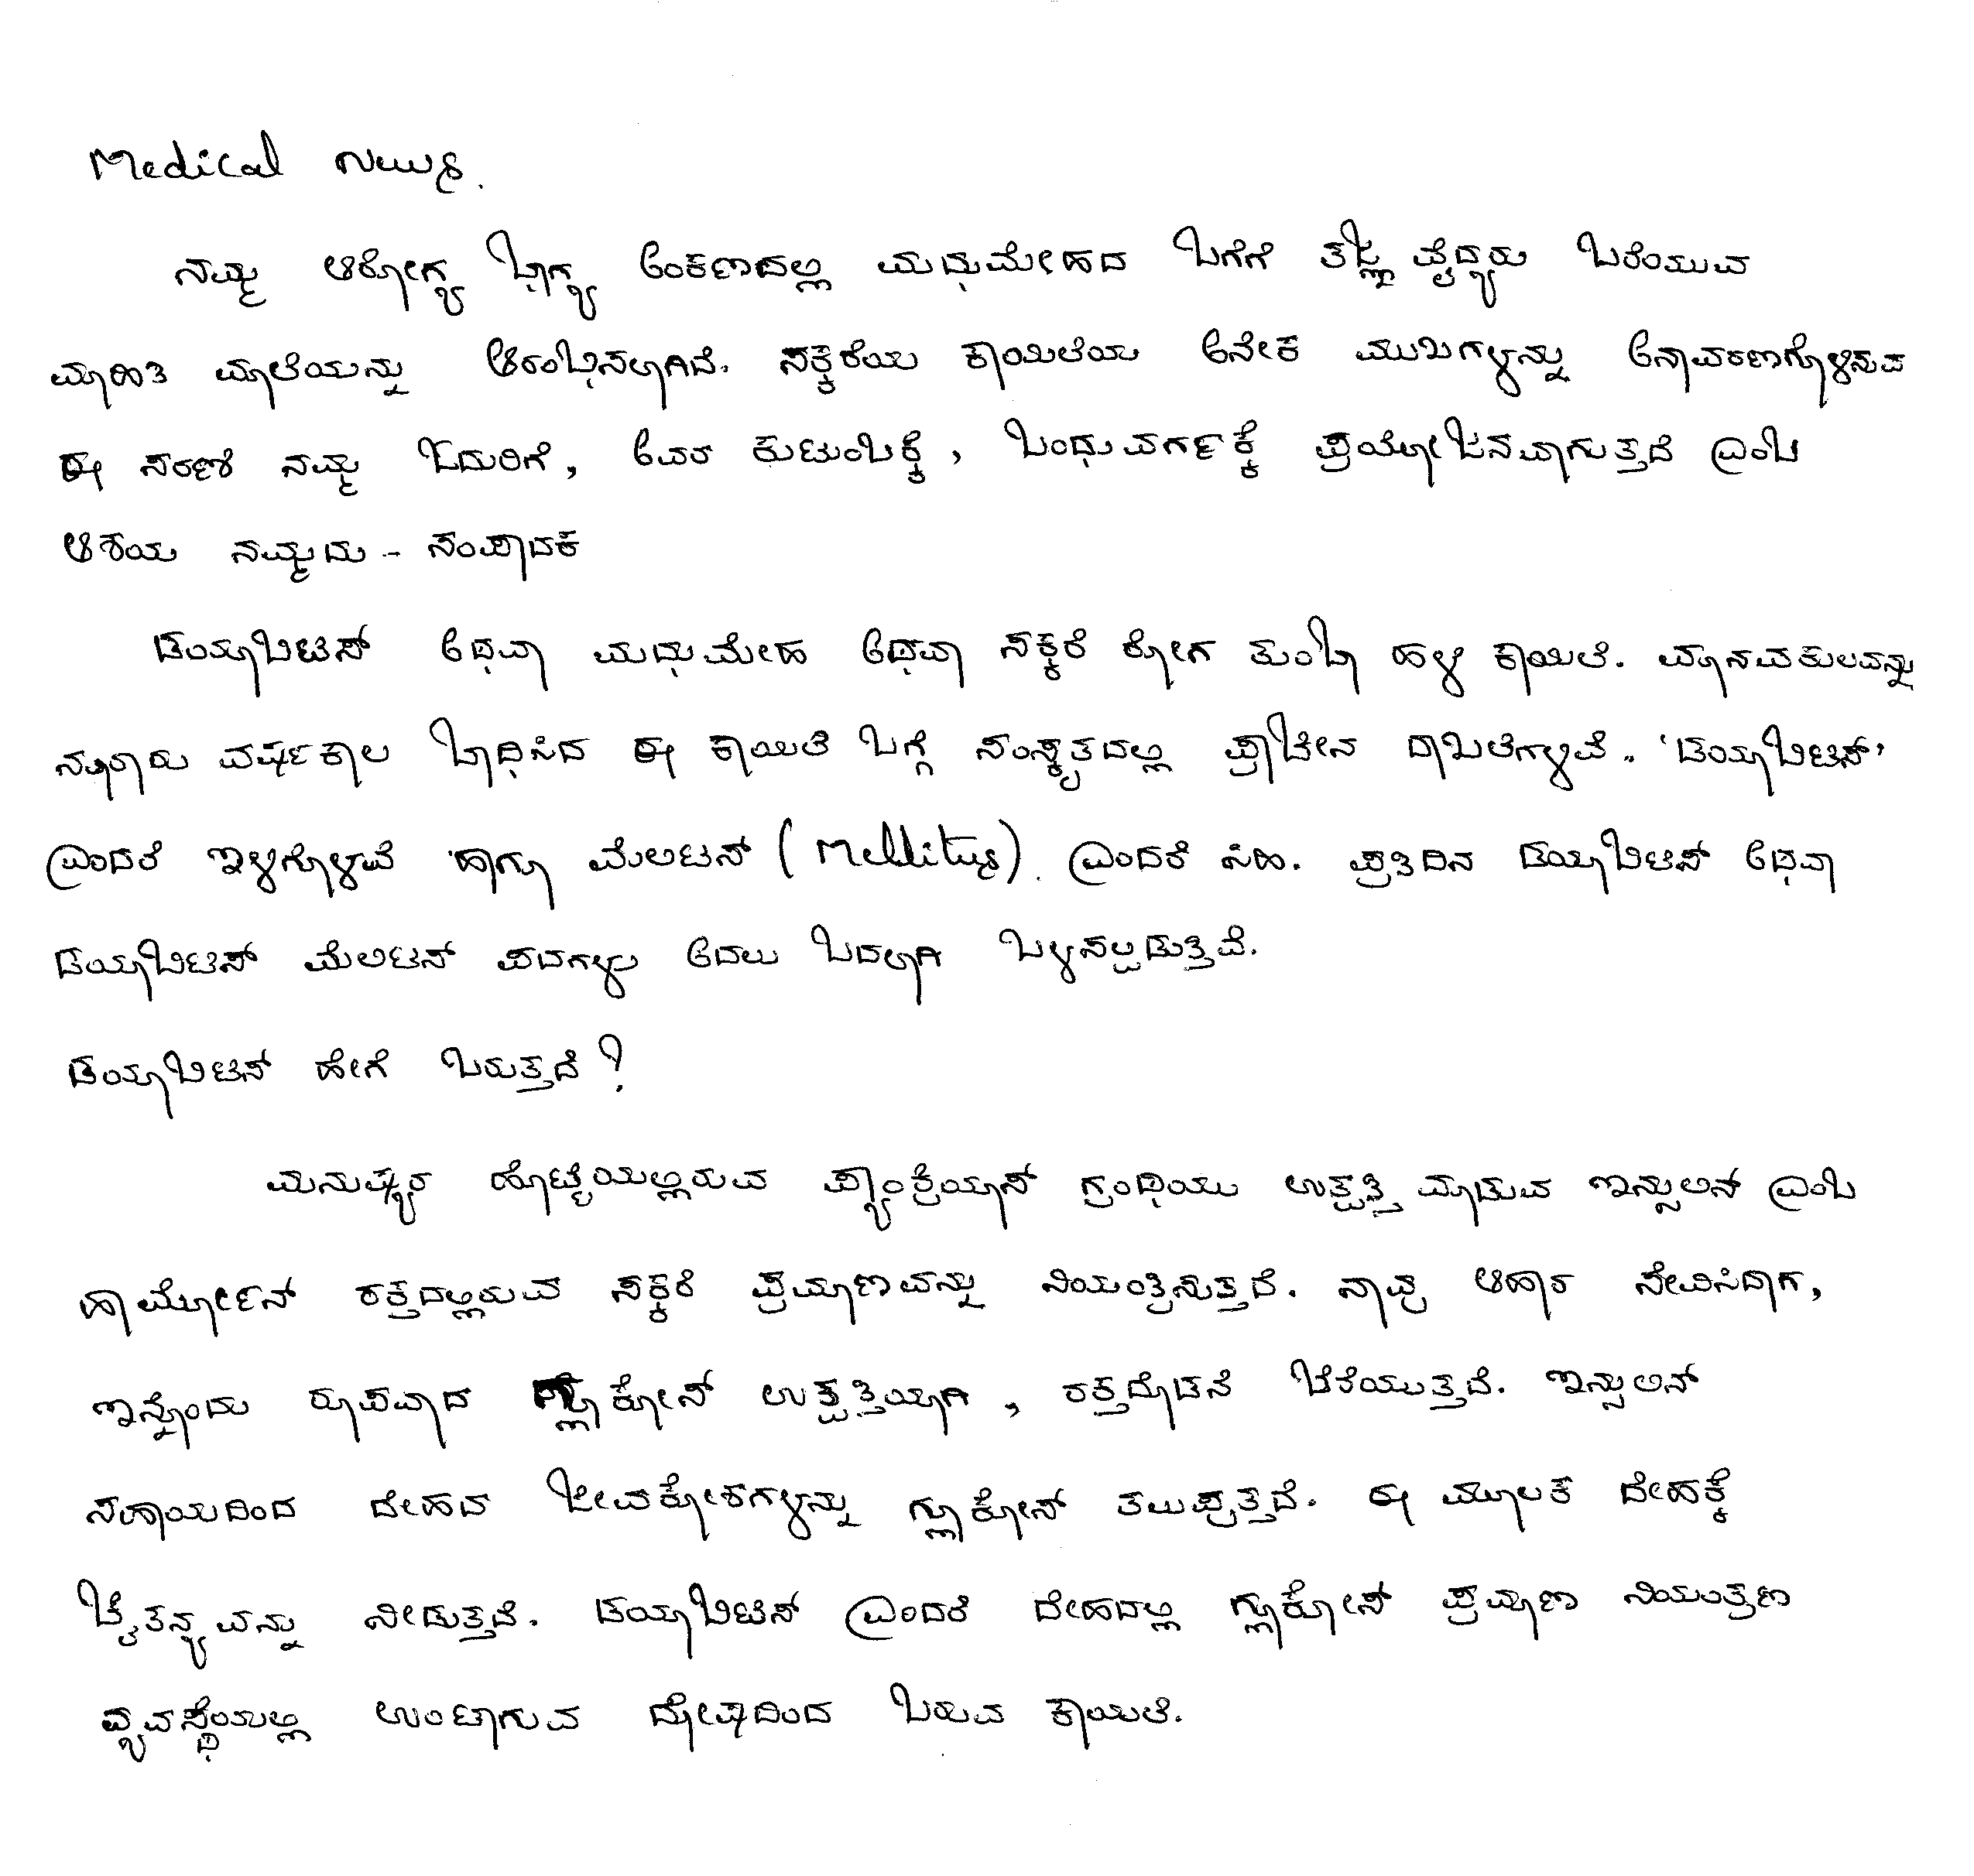 Medical ನ್ಯೂಸ್.
ನಮ್ಮ ಆರೋಗ್ಯ ಭಾಗ್ಯ ಅಂಕಣದಲ್ಲಿ ಮಧುಮೇಹದ ಬಗೆಗೆ ತಜ್ಞ ವೈದ್ಯರು ಬರೆಯುವ
ಮಾಹಿತಿ ಮಾಲೆಯನ್ನು ಆರಂಭಿಸಲಾಗಿದೆ. ಸಕ್ಕರೆಯ ಕಾಯಿಲೆಯ ಅನೇಕ ಮುಖಗಳನ್ನು ಅನಾವರಣಗೊಳಿಸುವ
ಈ ಸರಣಿ ನಮ್ಮ ಓದುಗರಿಗೆ, ಅವರ ಕುಟುಂಬಕ್ಕೆ, ಬಂಧುವರ್ಗಕ್ಕೆ ಪ್ರಯೋಜನವಾಗುತ್ತದೆ ಎಂಬ
ಆಶಯ ನಮ್ಮದು - ಸಂಪಾದಕ
ಡಯಾಬಿಟಿಸ್ ಅಥವಾ ಮಧುಮೇಹ ಅಥವಾ ಸಕ್ಕರೆ ರೋಗ ತುಂಬಾ ಹಳೆ ಕಾಯಿಲೆ. ಮಾನವಕುಲವನ್ನು
ನೂರಾರು ವರ್ಷಕಾಲ ಬಾಧಿಸಿದ ಈ ಕಾಯಿಲೆ ಬಗ್ಗೆ ಸಂಸ್ಕೃತದಲ್ಲಿ ಪ್ರಾಚೀನ ದಾಖಲೆಗಳಿವೆ. 'ಡಯಾಬಿಟಿಸ್'
ಎಂದರೆ ಇಳಿಗೊಳವೆ ಹಾಗೂ ಮೆಲಿಟಸ್ (Mellitus) ಎಂದರೆ ಸಿಹಿ. ಪ್ರತಿದಿನ ಡಯಾಬಿಟಿಸ್ ಅಥವಾ
ಡಯಾಬಿಟಿಸ್ ಮೆಲಿಟಸ್ ಪದಗಳು ಅದಲು ಬದಲಾಗಿ ಬಳಸಲ್ಪಡುತ್ತಿವೆ.
ಡಯಾಬಿಟಿಸ್ ಹೇಗೆ ಬರುತ್ತದೆ?
ಮನುಷ್ಯರ ಹೊಟ್ಟೆಯಲ್ಲಿರುವ ಪ್ಯಾಂಕ್ರಿಯಾಸ್ ಗ್ರಂಥಿಯು ಉತ್ಪತ್ತಿ ಮಾಡುವ ಇನ್ಸುಲಿನ್ ಎಂಬ
ಹಾರ್ಮೋನ್ ರಕ್ತದಲ್ಲಿರುವ ಸಕ್ಕರೆ ಪ್ರಮಾಣವನ್ನು ನಿಯಂತ್ರಿಸುತ್ತದೆ. ನಾವು ಆಹಾರ ಸೇವಿಸಿದಾಗ,
ಇನ್ನೊಂದು ರೂಪವಾದ ಗ್ಲೂಕೋಸ್ ಉತ್ಪತ್ತಿಯಾಗಿ, ರಕ್ತದೊಡನೆ ಬೆರೆಯುತ್ತದೆ. ಇನ್ಸುಲಿನ್
ಸಹಾಯದಿಂದ ದೇಹದ ಜೀವಕೋಶಗಳನ್ನು ಗ್ಲೂಕೋಸ್ ತಲುಪುತ್ತದೆ. ಈ ಮೂಲಕ ದೇಹಕ್ಕೆ
ಚೈತನ್ಯವನ್ನು ನೀಡುತ್ತದೆ. ಡಯಾಬಿಟಿಸ್ ಎಂದರೆ ದೇಹದಲ್ಲಿ ಗ್ಲೂಕೋಸ್ ಪ್ರಮಾಣ ನಿಯಂತ್ರಣ
ವ್ಯವಸ್ಥೆಯಲ್ಲಿ ಉಂಟಾಗುವ ದೋಷದಿಂದ ಬರುವ ಕಾಯಿಲೆ.